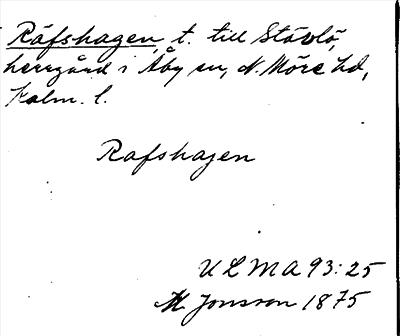 Räfshagen, t. till Stävlö,
herrgård i Åby sn, N. Möre hd,
Kalm. l.
Rafshagen
ULMA 93:25
M. Jonsson 1875